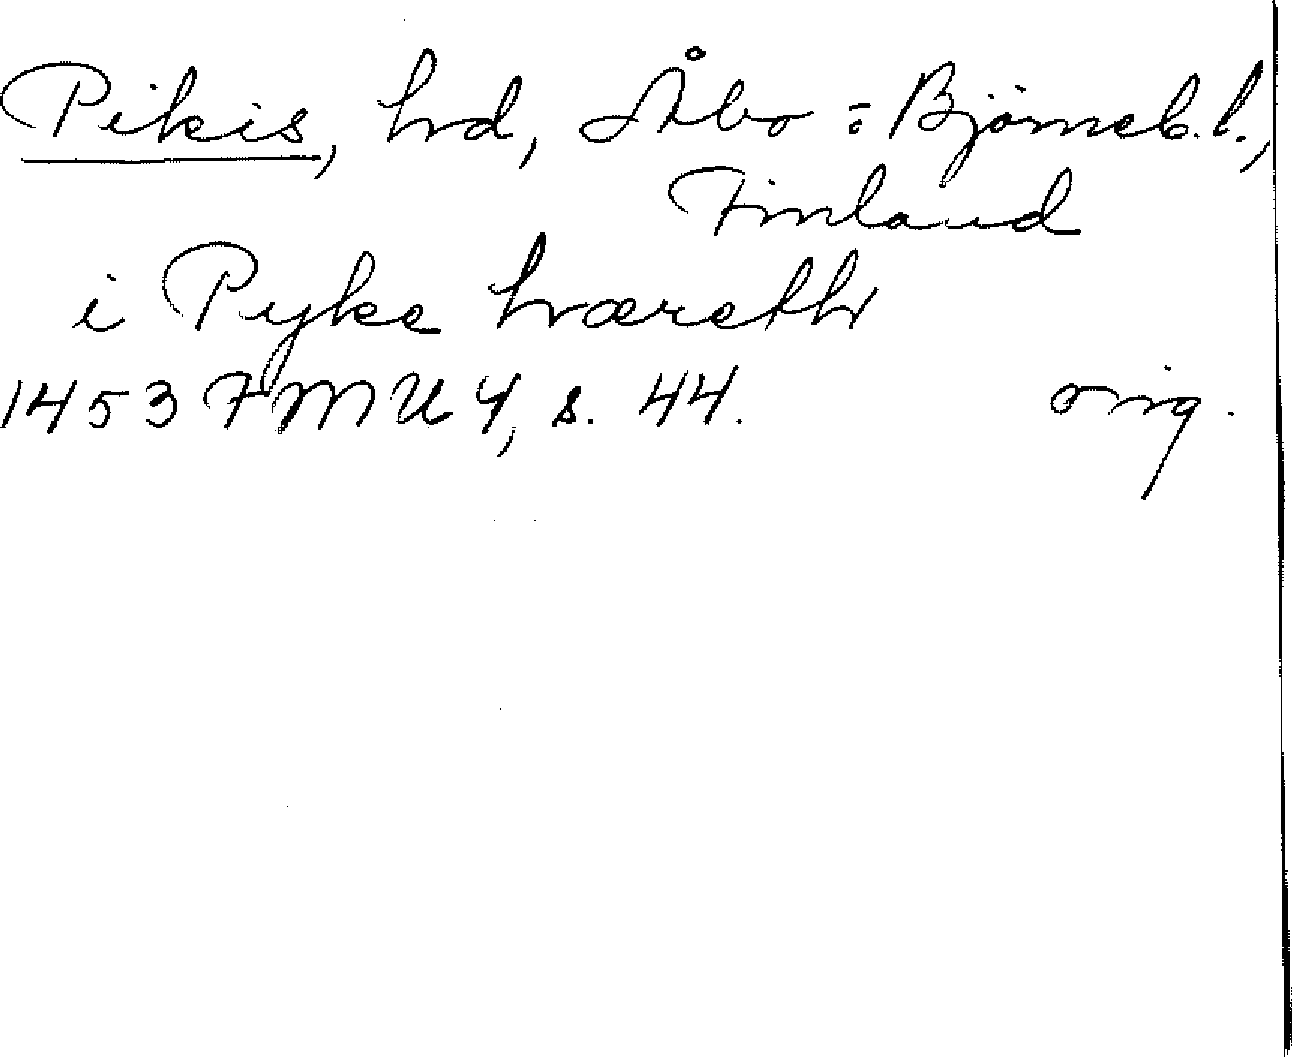 Pikis, hd, Åbo = Björneb. l.,
Finland
i Pyke hæreth
1453 FMU 4, s. 44. orig.